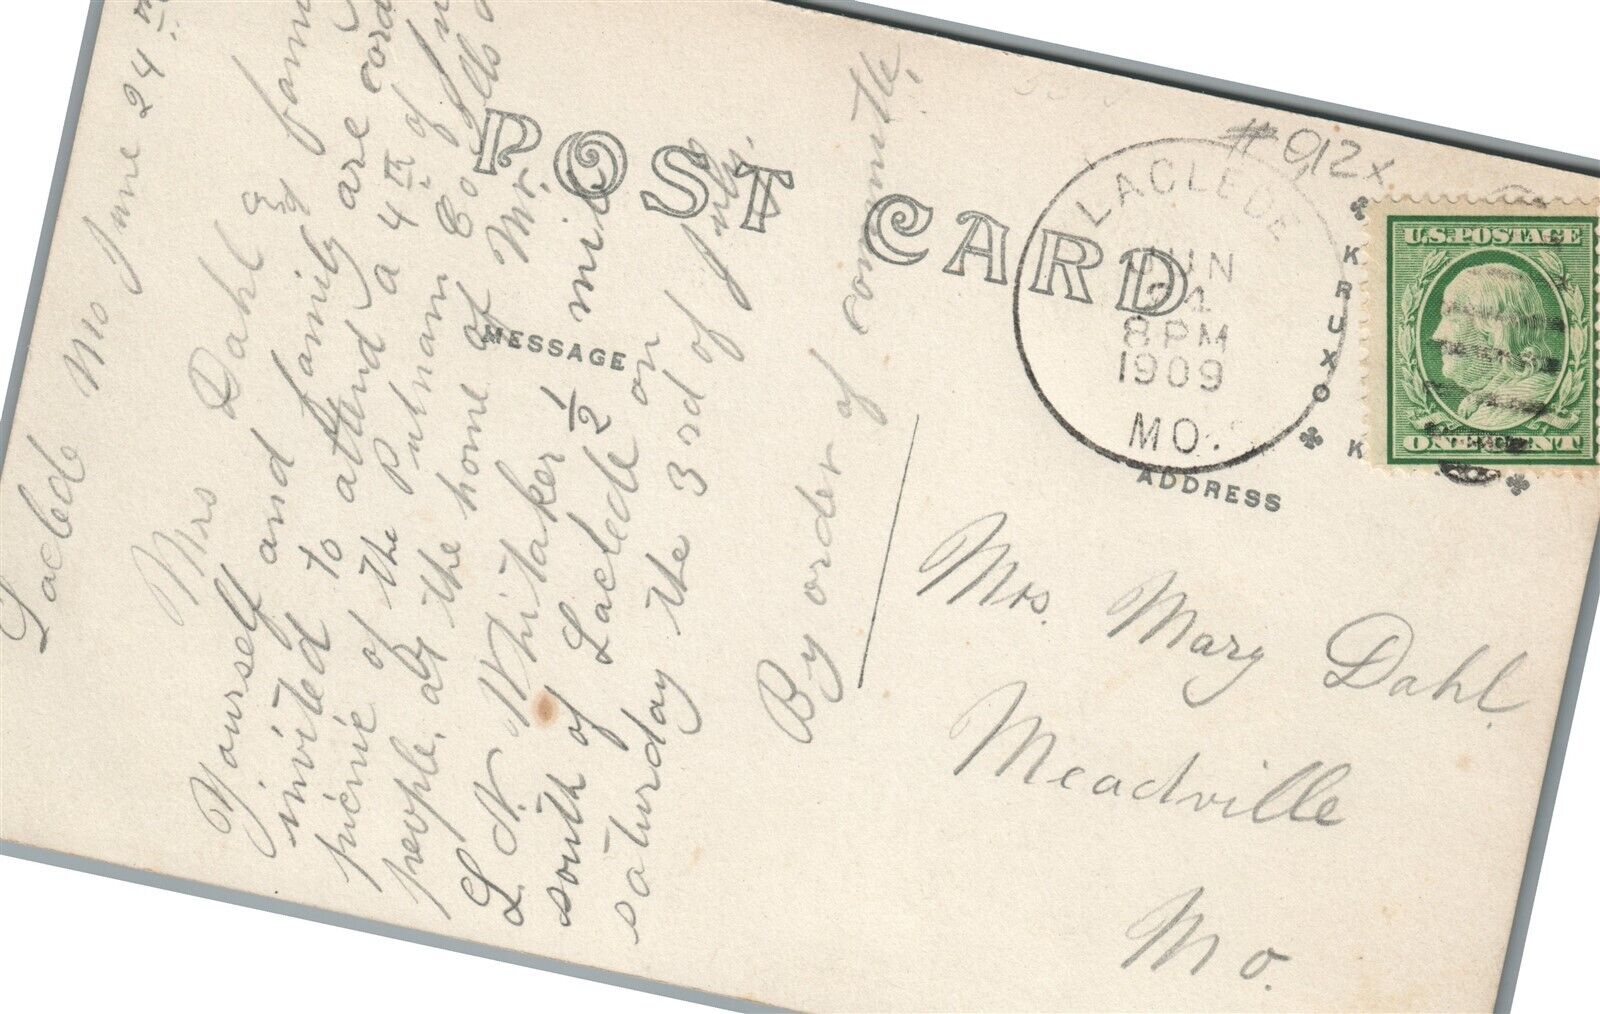 POST CARD
MESSAGE
ADDRESS
Laclede Mo June 24th
Mrs Dahl &
Yourself and family are cord
invited to attend a 4th of
picnic of the Putnam Co
people, at the home of Mr.
L. N. Whitaker 1/2 mile
south of Laclede on
saturday the 3rd of July.
By order of committe,
#912x
LACLEDE
JUN
24
8 PM
1909
MO.
KRUXO
K
K
U.S. POSTAGE
ONE CENT
Mrs. Mary Dahl.
Meadville
Mo.